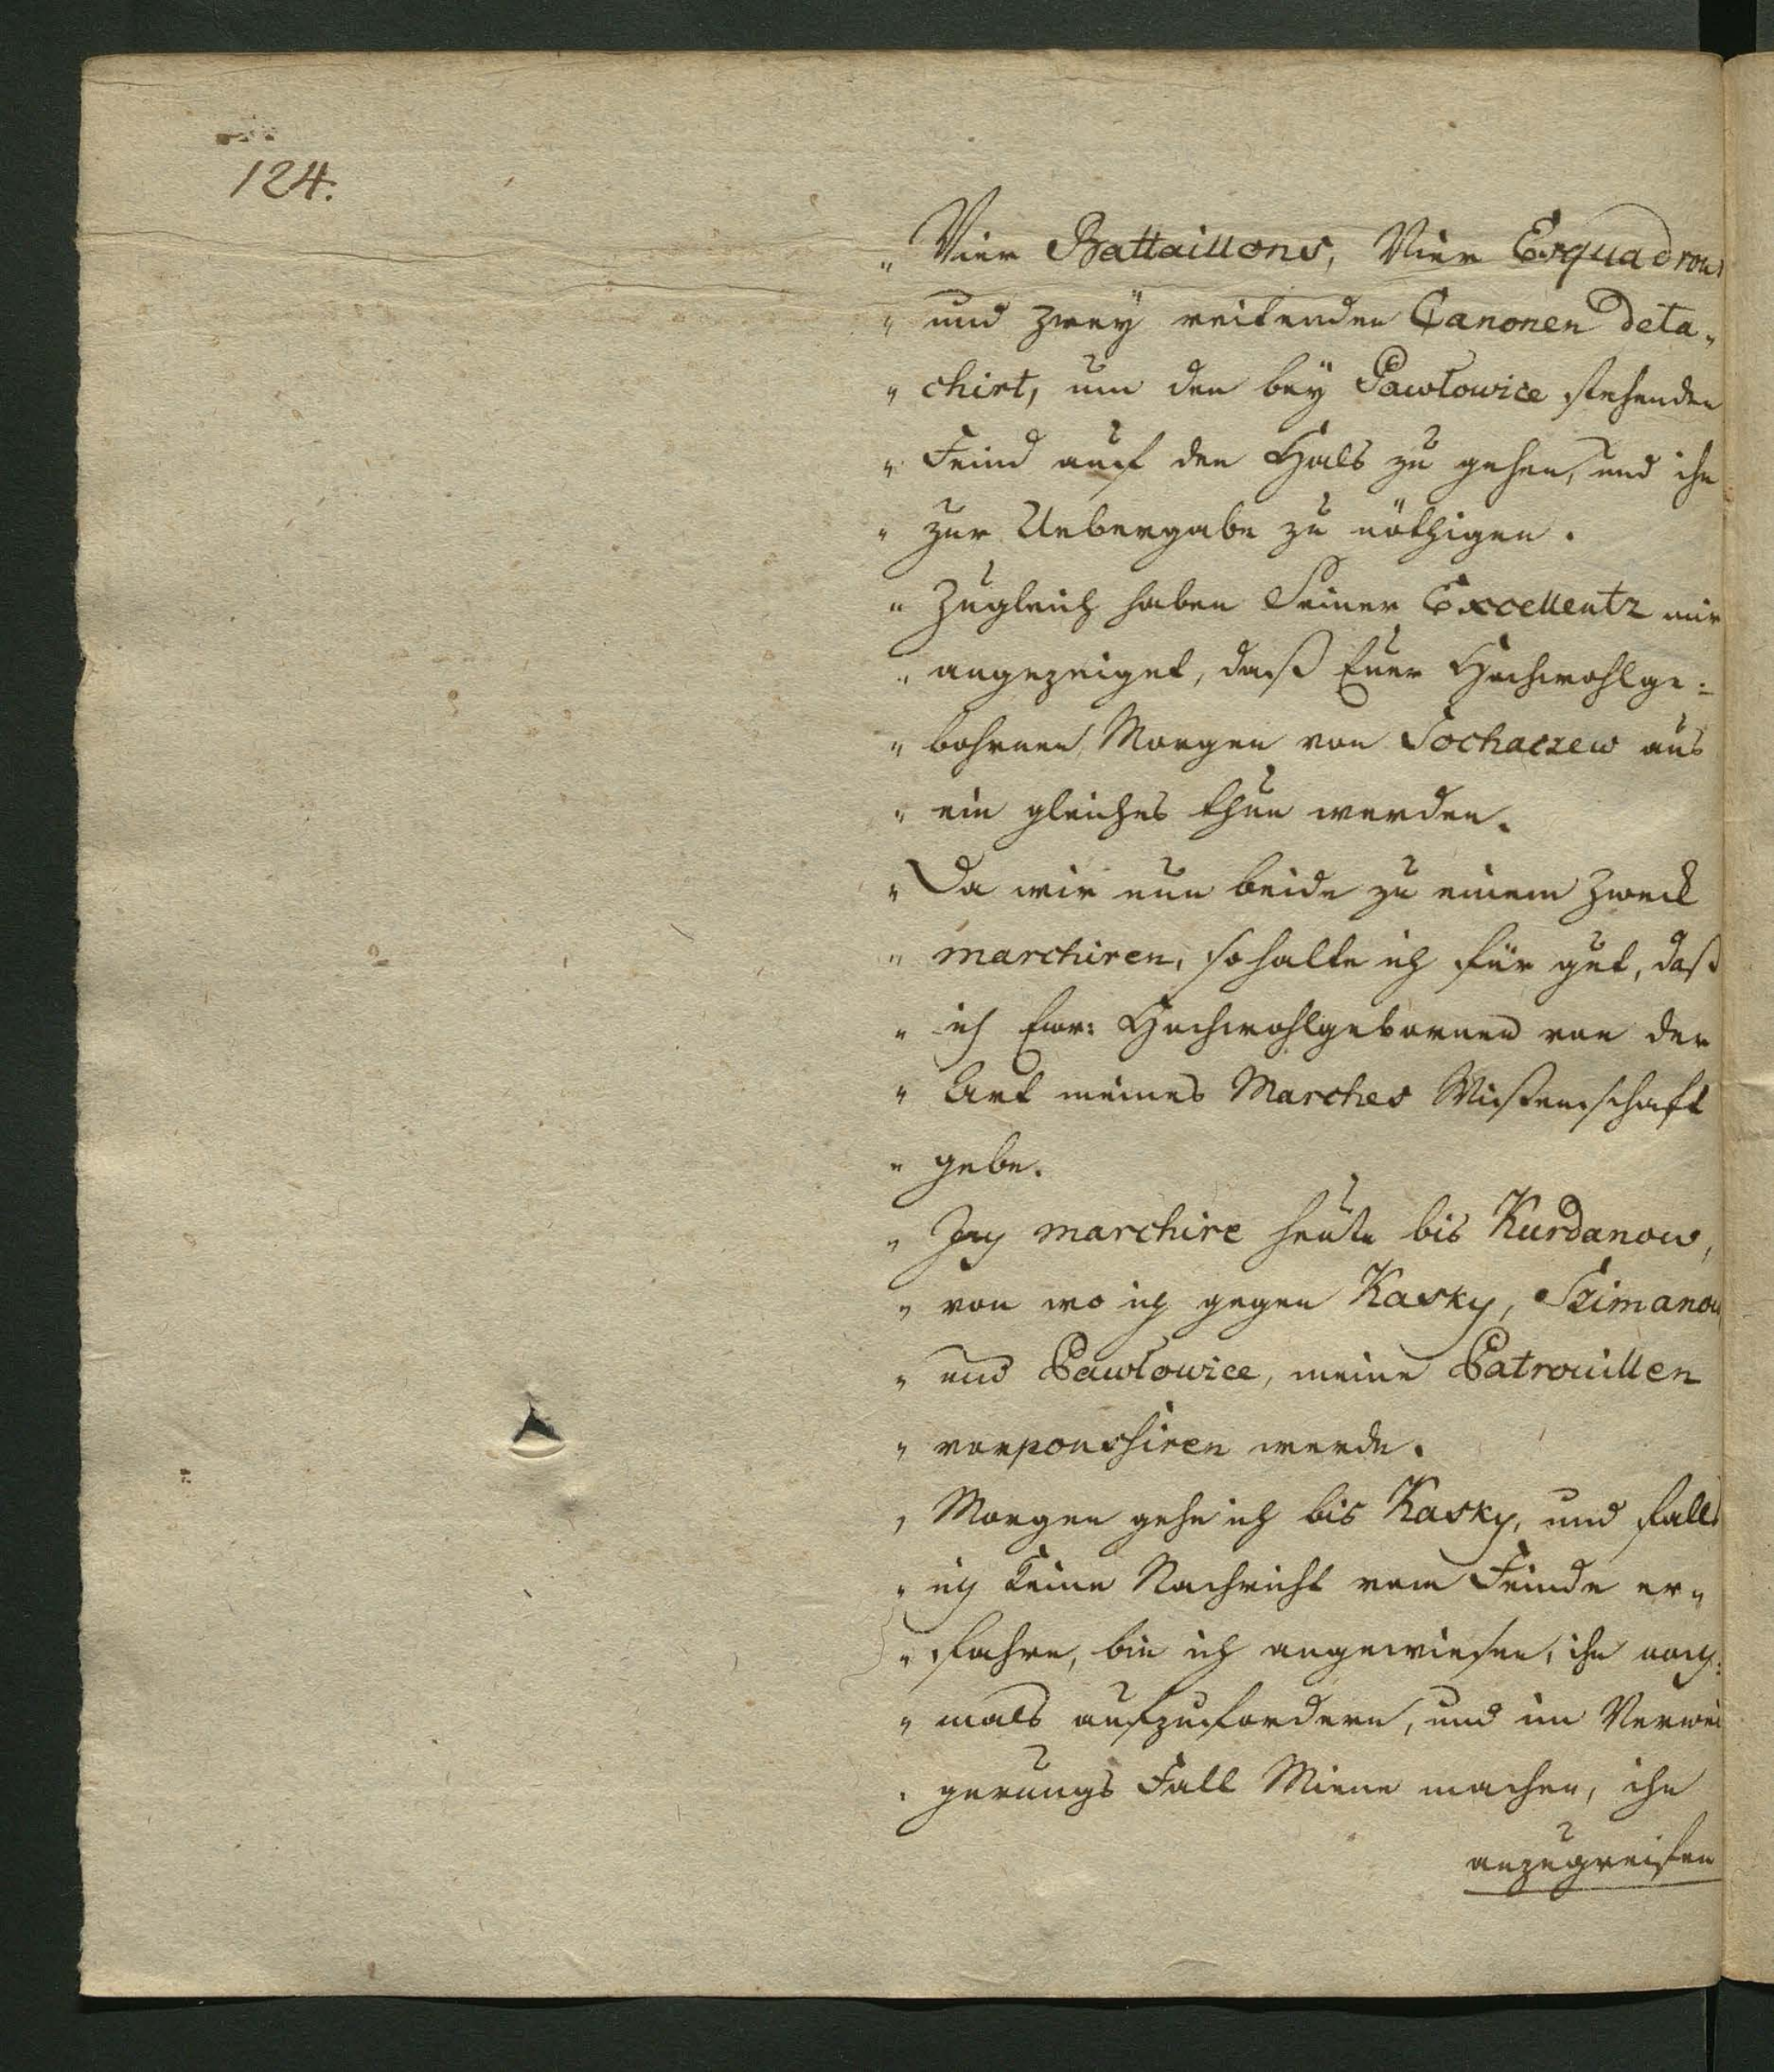 124.
„ Vier Battaillons, Vier Esquadrons
„ und zwey reitenden Canonen deta„
„ chirt, um den bey Pawlowice stehenden
„ Feind auf den Hals zu gehen, und ihn
„ zur Uebergabe zu nöthigen.
„ Zugleich haben Seiner Excellentz mir
„ angezeiget, daß Euer Hochwohlge=
„ bohrnen, Morgen von Sochaczew aus
„ ein gleiches thun werden.
„ Da wir nun beide zu einem Zweck
„ marchiren, so halte ich für gut, daß
„ ich Ewr: Hochwohlgebornen von der
„ Art meines Marches Wißenschaft
„ gebe.
„ Ich marchire heute bis Kurdanow,
„ von wo ich gegen Kasky, Szimanow
„ und Pawlowice, meine Patrouillen
„ vorpoussiren werde.
„ Morgen gehe ich bis Kasky, und falls
„ ich keine Nachricht vom Feinde er„
„ fahre, bin ich angewiesen, ihn noch=
„ mals aufzufordern, und im Verwei
„ gerungs Fall Miene machen, ihn
anzugreifen